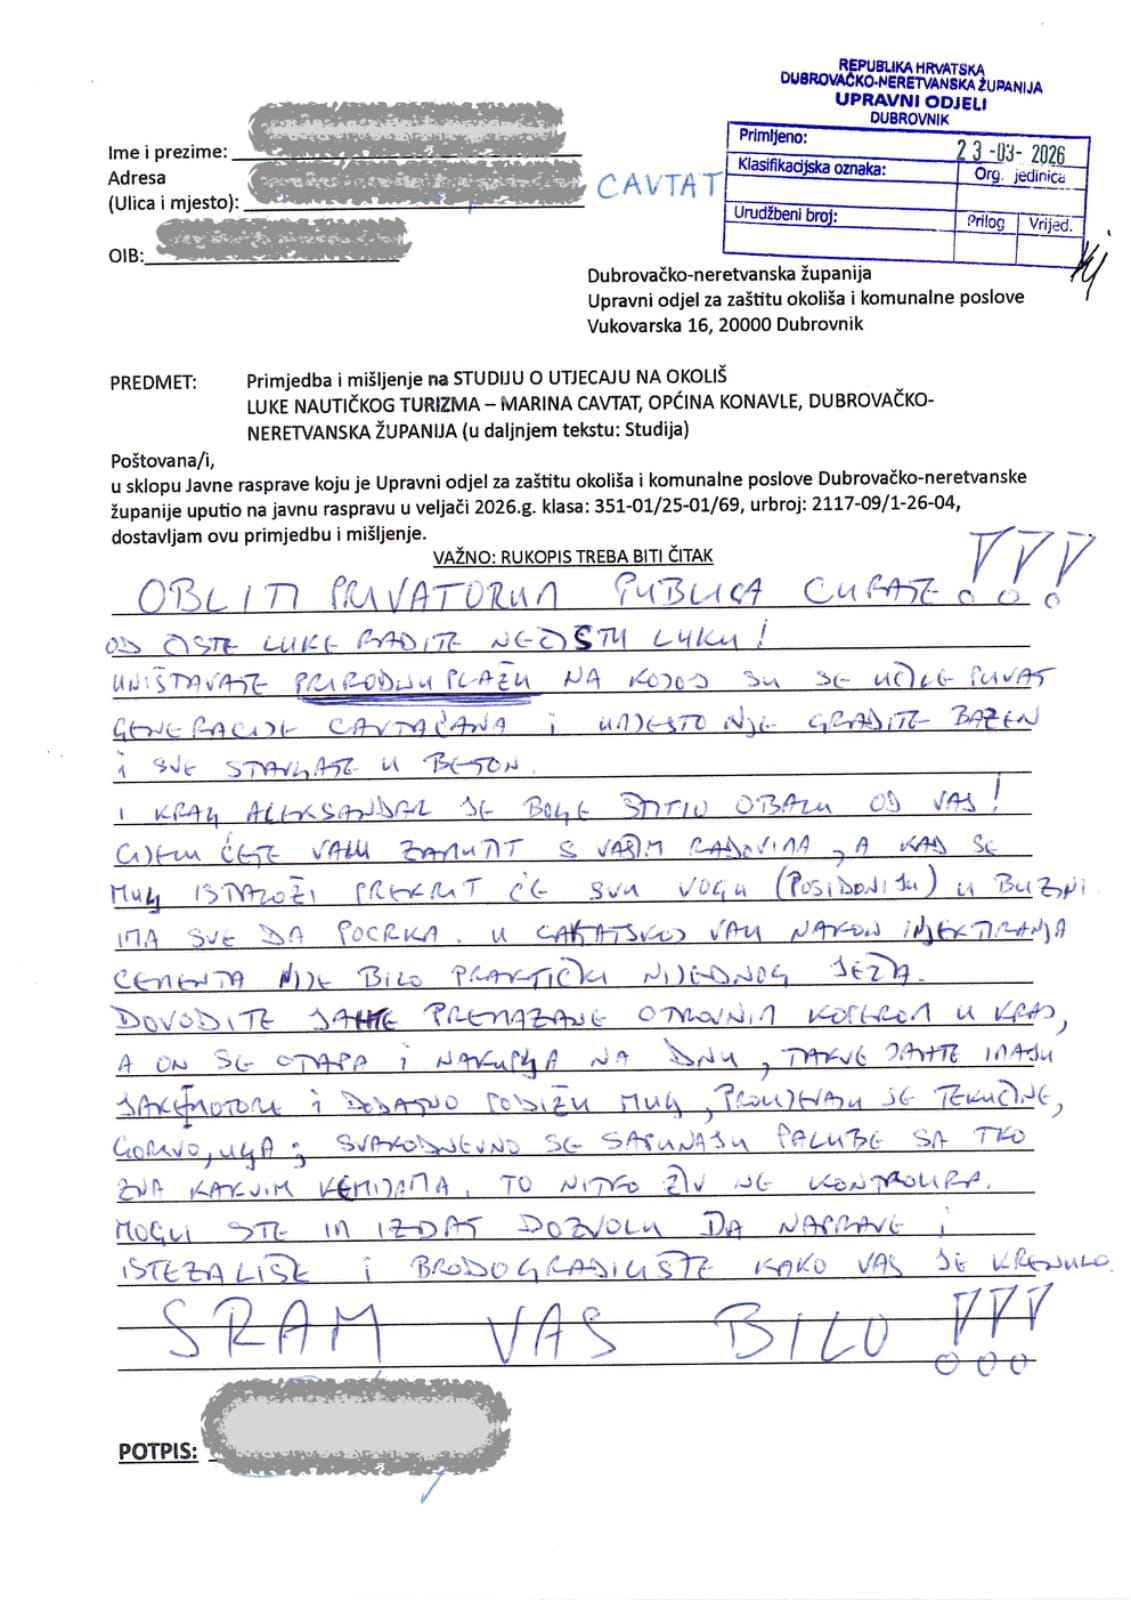 REPUBLIKA HRVATSKA
DUBROVAČKO-NERETVANSKA ŽUPANIJA
UPRAVNI ODJELI
DUBROVNIK
Primljeno: 23-03-2026
Klasifikacijska oznaka: Org. jedinica
Urudžbeni broj: Prilog Vrijed.
Ime i prezime:
Adresa
(Ulica i mjesto): CAVTAT
OIB:
Dubrovačko-neretvanska županija
Upravni odjel za zaštitu okoliša i komunalne poslove
Vukovarska 16, 20000 Dubrovnik
PREDMET: Primjedba i mišljenje na STUDIJU O UTJECAJU NA OKOLIŠ
LUKE NAUTIČKOG TURIZMA – MARINA CAVTAT, OPĆINA KONAVLE, DUBROVAČKO-
NERETVANSKA ŽUPANIJA (u daljnjem tekstu: Studija)
Poštovana/i,
u sklopu Javne rasprave koju je Upravni odjel za zaštitu okoliša i komunalne poslove Dubrovačko-neretvanske
županije uputio na javnu raspravu u veljači 2026.g. klasa: 351-01/25-01/69, urbroj: 2117-09/1-26-04,
dostavljam ovu primjedbu i mišljenje.
VAŽNO: RUKOPIS TREBA BITI ČITAK
OBLITI PRIVATORUM PUBLICA CURATE !!!
OD ČISTE LUKE RADITE NEČISTU LUKU!
UNIŠTAVATE PRIRODNU PLAŽU NA KOJOJ SU SE UČILE PLIVAT
GENERACIJE CAVTAĆANA I UMJESTO NJE GRADITE BAZEN
I SVE STAVLJATE U BETON.
I KRALJ ALEKSANDAR JE BOLJE ŠTITIO OBALU OD VAS!
CIJELU ĆETE VALU ZAMUTIT S VAŠIM RADOVIMA, A KAD SE
MULJ ISTALOŽI PREKRIT ĆE SVU VOGU (POSIDONIJU) U BLIZINI
IMA SVE DA POCRKA. U VALU NAKON INJEKTIRANJA
CEMENTA NIJE BILO PRAKTIČKI NIJEDNOG JEŽA.
DOVODITE JAHTE PREMAZANE OTROVNIM KOPEROM U KRAJ,
A ON SE OTAPA I NAKUPLJA NA DNU, TAKVE JAHTE IMAJU
JAKE MOTORE I DODATNO PODIŽU MULJ, PROLIJEVAJU SE TEKUĆINE,
GORIVO, ULJA; SVAKODNEVNO SE SAPUNAJU PALUBE SA TKO
ZNA KAKVIM KEMIJAMA. TO NITKO ŽIV NE KONTROLIRA.
MOGLI STE IM IZDAT DOZVOLU DA NAPRAVE I
ISTEZALIŠE I BRODOGRADILIŠTE KAKO VAS JE KRENULO.
SRAM VAS BILO !!!
POTPIS: